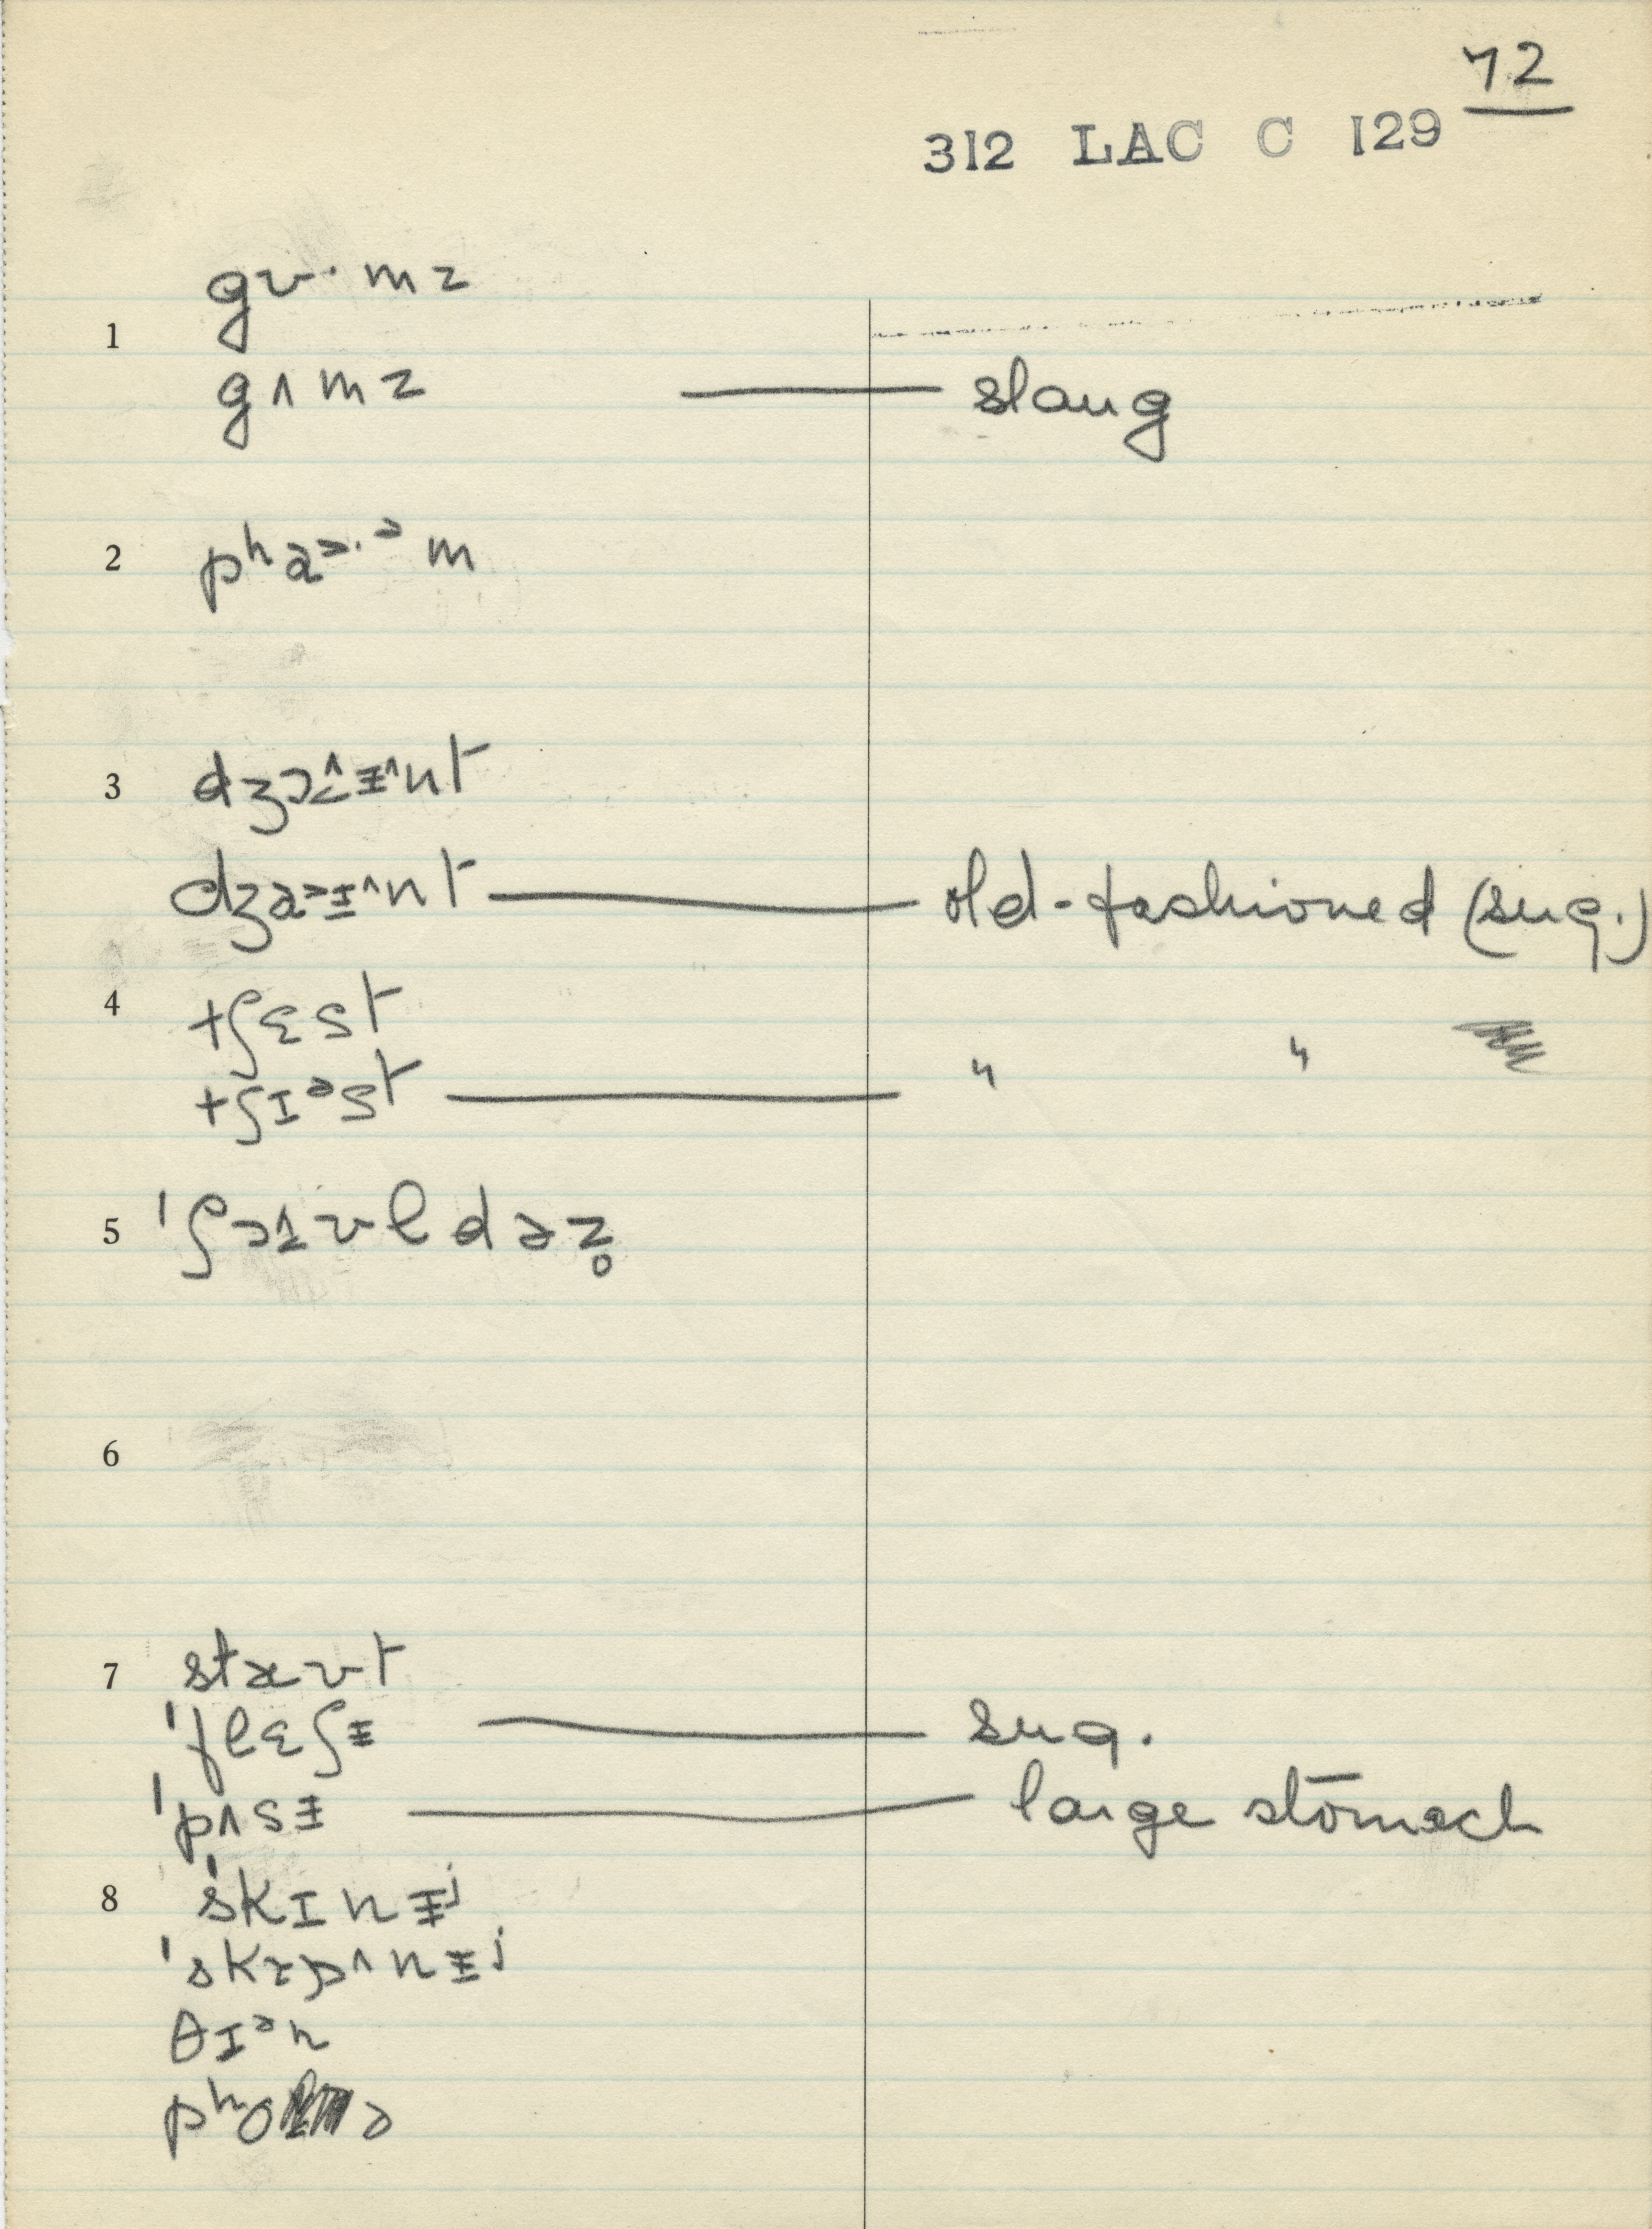 72
312 LAC C 129
gʊ·mz
1
gʌmz — slang
2 pʰa˃·ᵊm
3 dʒɔ^ɨ^nt
dʒa˃ɨ^nt — old-fashioned (sug.)
4 tʃɛst
tʃɪᵊst — " "
5 'ʃɔʊldəz̥
6
7 staʊt
'flɛʃɨ — sug.
'pʌsɨ — large stomach
8 'skɪnɨʲ
'skɪp^nɨʲ
θɪᵊn